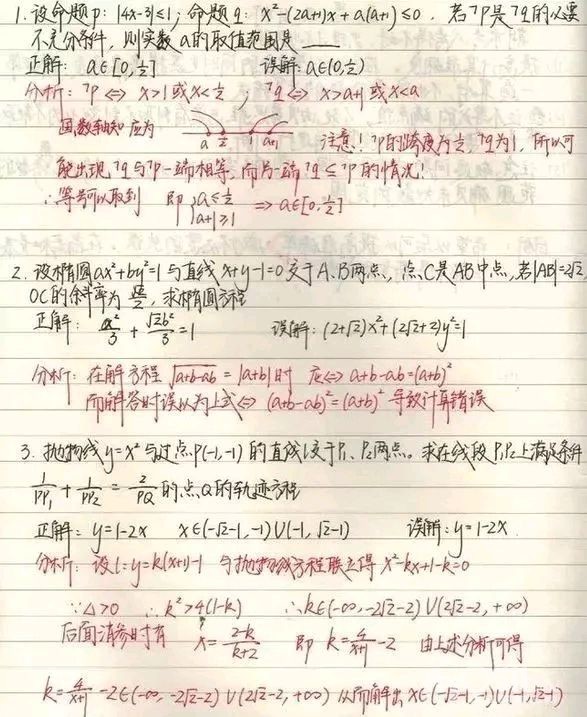 1. 设命题p: |4x-3|≤1; 命题q: x²-(2a+1)x+a(a+1)≤0. 若¬p是¬q的必要
不充分条件, 则实数a的取值范围是 ____
正解: a∈[0,½] 误解: a∈(0,½)
分析: ¬p ⇔ x>1或x<½ ; ¬q ⇔ x>a+1 或x<a
因数轴知 应为 a ½ 1 a+1 注意!¬p的跨度为½, ¬q为1, 所以可
能出现¬q与¬p一端相等, 而另一端¬q≤¬p的情况!
∴等号可以取到 即 {a≤½ a+1≥1 ⇒ a∈[0,½]
2. 设椭圆ax²+by²=1与直线x+y-1=0交于A、B两点, 点C是AB中点, 若|AB|=2√2,
OC的斜率为 √2/2, 求椭圆方程
正解: x²/3 + √2b²/3 =1 误解: (2+√2)x²+(2√2+2)y²=1
分析: 在解方程 √(a+b-ab) = |a+b|时 应⇔ a+b-ab=(a+b)²
而解答时误以为上式⇔ (a+b-ab)²=(a+b)² 导致计算错误
3. 抛物线y=x²与过点P(-1,-1)的直线l交于P₁、P₂两点。求在线段P₁P₂上满足条件
1/PP₁ + 1/PP₂ = 2/PQ 的点Q的轨迹方程
正解: y=1-2x x∈(-√2-1,-1)∪(-1,√2-1) 误解: y=1-2x
分析: 设l: y=k(x+1)-1 与抛物线方程联立得 x²-kx+1-k=0
∵Δ>0 ∴k²>4(1-k) ∴k∈(-∞,-2√2-2)∪(2√2-2,+∞)
后面消参时有 x=(2-k)/(k+2) 即 k=4/(x+1)-2 由上述分析可得
k=4/(x+1)-2∈(-∞,-2√2-2)∪(2√2-2,+∞) 从而解出x∈(-√2-1,-1)∪(-1,√2-1)